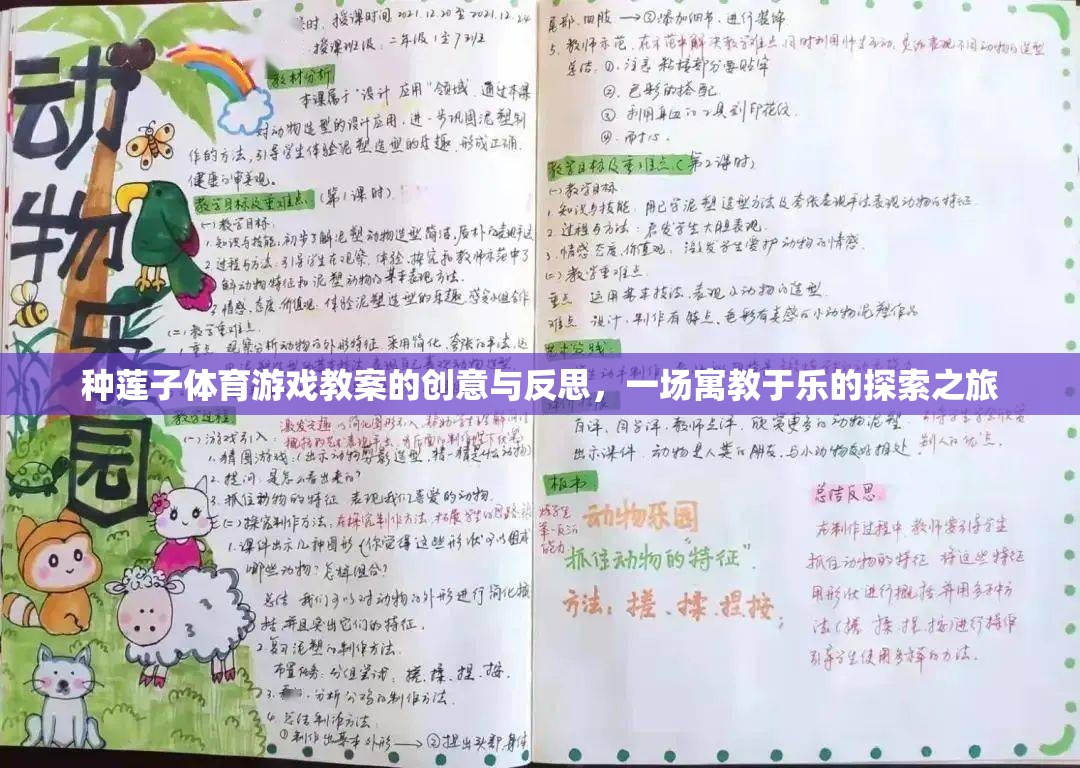 动物乐园
课时、授课时间 2021.12.20至2021.12.24
授课班级：二年级1至7班
教材分析
本课属于“设计 应用”领域，通过本课
对动物造型的设计应用，进一步巩固泥塑制
作的方法，引导学生体验泥塑造型的乐趣，形成正确、
健康的审美观。
教学目标及重难点（第1课时）
(一)教学目标
1.知识与技能：初步了解泥塑动物造型简洁、质朴的表现手法
2.过程与方法：引导学生在观察、体验、探究和教师示范中了
解动物特征和泥塑动物的基本表现方法。
3.情感、态度、价值观：体验泥塑造型的乐趣，感受小组合作
(二)教学重难点
1.重点 观察分析动物的外形特征，采用简化、夸张的手法，运
种莲子体育游戏教案的创意与反思，一场寓教于乐的探索之旅
教学过程
(一)游戏引入：
1.猜图游戏：(出示动物剪影造型，猜一猜是什么动物)
2.提问：是怎么看出来的？
3.抓住动物的特征，表现我们喜爱的动物。
(二)探究制作方法：在探究制作方法，拓展学生的思路
1.课件出示几种图形(你觉得这些形状可以组成
哪些动物？怎样组合？
总结：我们可以对动物的外形进行简化概
括，并且突出它们的特征。
2.复习泥塑的制作方法
布置任务：分组尝试：搓、揉、捏、按。
3.分析公鸡的制作方法
4.总结制作方法
①制作出基本外形→②捏出头部、身体
尾部、四肢→③添加细节，进行装饰
5.教师示范，在示范中解决教学难点，同时利用师生互动，更好表现不同动物的造型
总结：①.注意粘接部分要贴牢
②.色彩的搭配
③.利用身边的工具刻印花纹
④.耐心。
教学目标及重难点（第2课时）
(一)教学目标
1.知识与技能：用已学泥塑造型方法及夸张表现手法表现动物的特征。
2.过程与方法：启发学生大胆表现。
3.情感、态度、价值观：激发学生爱护动物的情感。
(二)教学重难点
重点 运用基本技法，表现小动物的造型
难点 设计、制作有特点、色彩有美感的小动物泥塑作品
自评、同学评、教师点评，欣赏更多的动物泥塑
出示课件：动物是人类的朋友，与小动物友好相处
别人的优点。
板书
动物乐园
抓住动物的“特征”。
方法：搓、揉、捏、按；
总结反思
在制作过程中，教师要引导学生
抓住动物的特征，将这些特征
用形状进行概括，并用多种方
法(搓、揉、捏、按)进行操作
引导学生使用多样的方法。